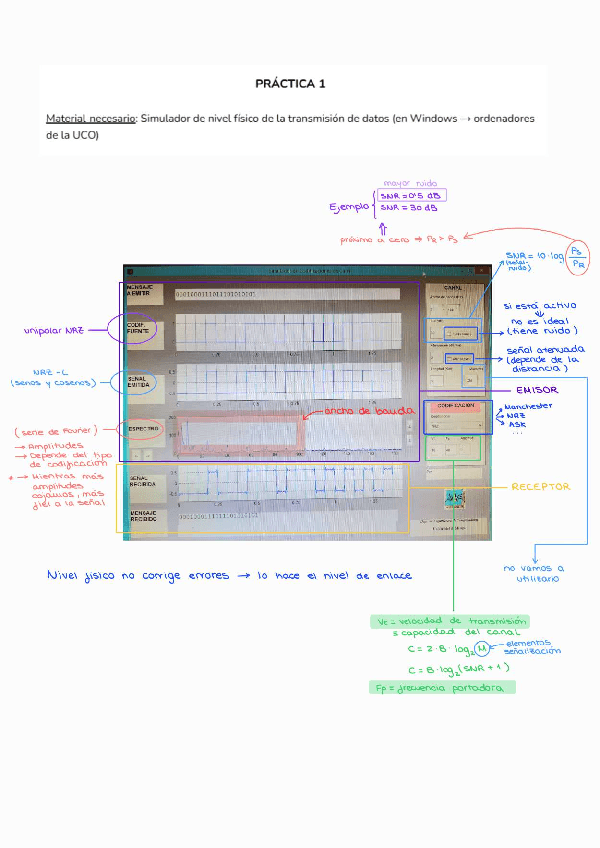 PRÁCTICA 1
Material necesario: Simulador de nivel físico de la transmisión de datos (en Windows → ordenadores
de la UCO)
mayor ruido
Ejemplo
SNR = 0'5 dB
SNR = 30 dB
próximo a cero ⇒ PR > Ps
SNR = 10·log Ps/PR
(señal
ruido)
MENSAJE
A EMITIR
0001000111011101010101
CANAL
si está activo
no es ideal
(tiene ruido)
unipolar NRZ
CODIF.
FUENTE
señal atenuada
(depende de la
distancia)
NRZ-L
(senos y cosenos)
SEÑAL
EMITIDA
EMISOR
CODIFICACION
Manchester
NRZ
ASK
...
ancho de banda
(serie de Fourier)
ESPECTRO
→ Amplitudes
→ Depende del tipo
de codificación
* → Mientras más
amplitudes
cojamos, más
fiel a la señal
SEÑAL
RECIBIDA
RECEPTOR
MENSAJE
RECIBIDO
0001000111011101010101
Nivel físico no corrige errores → lo hace el nivel de enlace
no vamos a
utilizarlo
Vt = velocidad de transmisión
= capacidad del canal
C = 2·B·log2 M
elementos
señalización
C = B·log2(SNR + 1)
Fp = frecuencia portadora